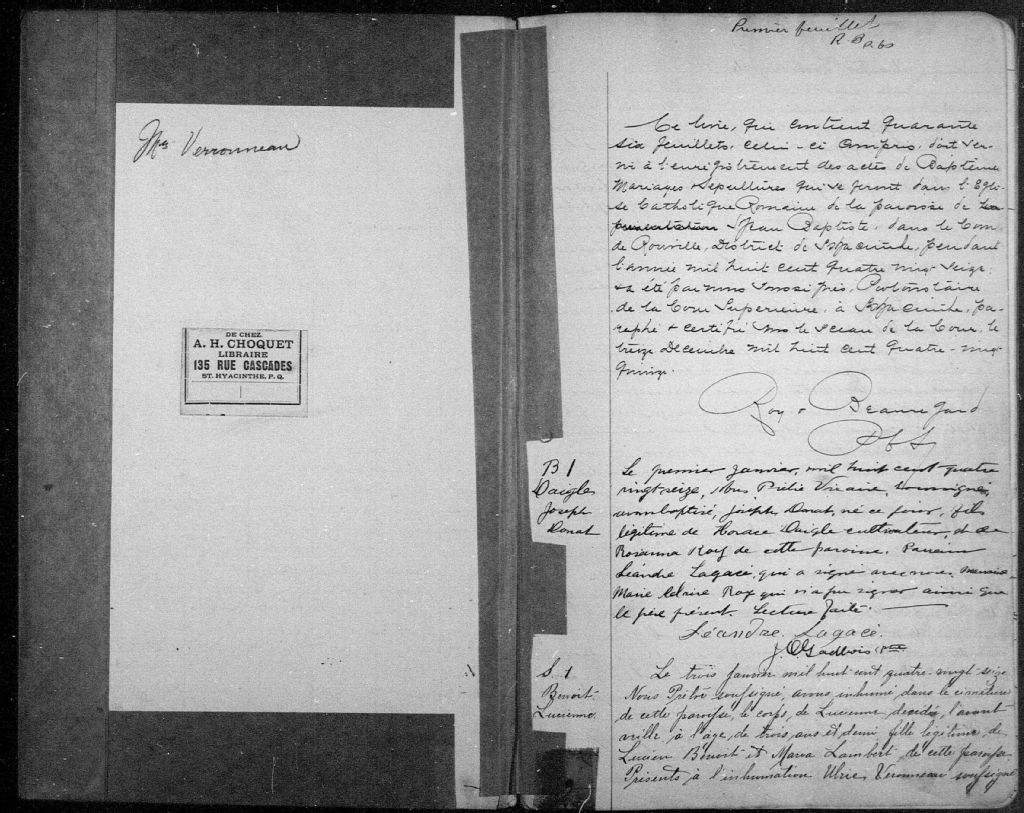 Mr Verronneau
DE CHEZ
A. H. CHOQUET
LIBRAIRE
135 RUE CASCADES
ST. HYACINTHE, P. Q.
Premier feuillet
R. B
Ce livre, qui contient quarante
six feuillets, celui-ci compris, doit ser-
vir à l'enregistrement des actes de Baptême
Mariages & Sepultures qui se feront dans l'Egli-
se Catholique Romaine de la paroisse de
Jean Baptiste, dans le Com
de Rouville, District de St Hyacinthe, pendant
l'année mil huit cent quatre vingt seize
& a été par nous soussignés, Protonotaire
de la Cour Superieure, à St Hyacinthe, pa-
raphé & certifié sous le sceau de la Cour, le
treize Decembre mil huit cent quatre-vingt
quinze.
Roy & Beauregard
P C S
B 1
Daigle
Joseph
Donat
Le premier janvier, mil huit cent quatre
vingt seize, Nous Prêtre Vicaire, soussigné,
avons baptisé, Joseph Donat, né ce jour, fils
légitime de Horace Daigle cultivateur, et de
Rosanna Roy de cette paroisse. Parrain
Léandre Lagacé, qui a signé avec nous. Marraine
Marie Roy qui n'a pu signer ainsi que
le père présent. Lecture faite.
Léandre Lagacé.
J. O Gadbois Ptre
S. 1
Benoit
Lucienne
Le trois Janvier mil huit cent quatre-vingt-seize
Nous Prêtre soussigné, avons inhumé dans le cimetière
de cette paroisse, le corps, de Lucienne décédée, l'avant
veille à l'âge, de trois ans et demi, fille légitime, de
Lucien Benoit et Maria Lambert de cette paroisse
Présents à l'inhumation Ulric Véronneau soussigné